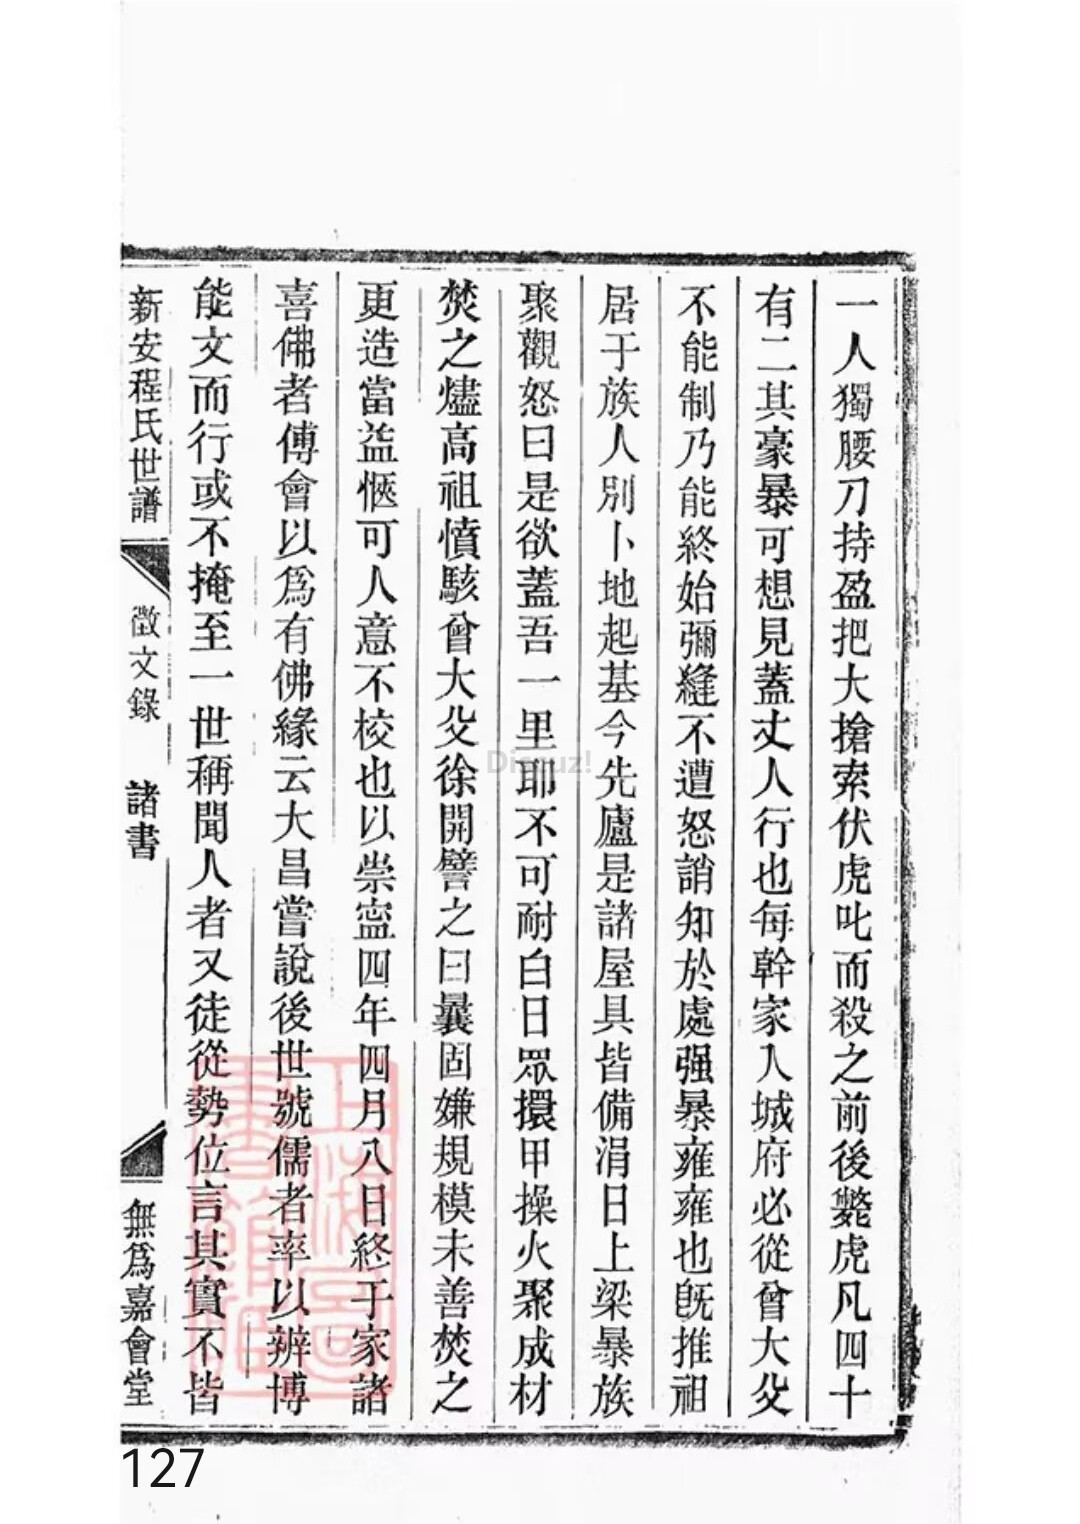 一人獨腰刀持盈把大搶索伏虎叱而殺之前後斃虎凡四十
有二其豪暴可想見蓋丈人行也每幹家人城府必從曾大父
不能制乃能終始彌縫不遭怒誚知於處强暴雍雍也旣推祖
居于族人別卜地起基今先廬是諸屋具皆備涓日上梁暴族
聚觀怒曰是欲蓋吾一里耶不可耐白日眾擐甲操火聚成材
焚之燼高祖憤駭曾大父徐開譬之曰曩固嫌規模未善焚之
更造當益愜可人意不校也以崇寍四年四月八日終于家諸
喜佛者傅會以爲有佛緣云大昌嘗說後世號儒者率以辨博
能文而行或不掩至一世稱聞人者又徒從勢位言其實不皆
新安程氏世譜 徵文錄 諸書 無爲嘉會堂
上海圖書館藏
Discuz!
127